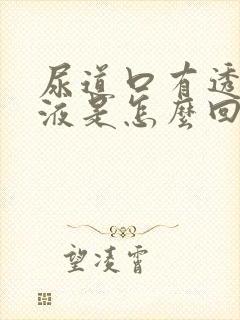 尿道口有透
液是怎麼回
望凌霄